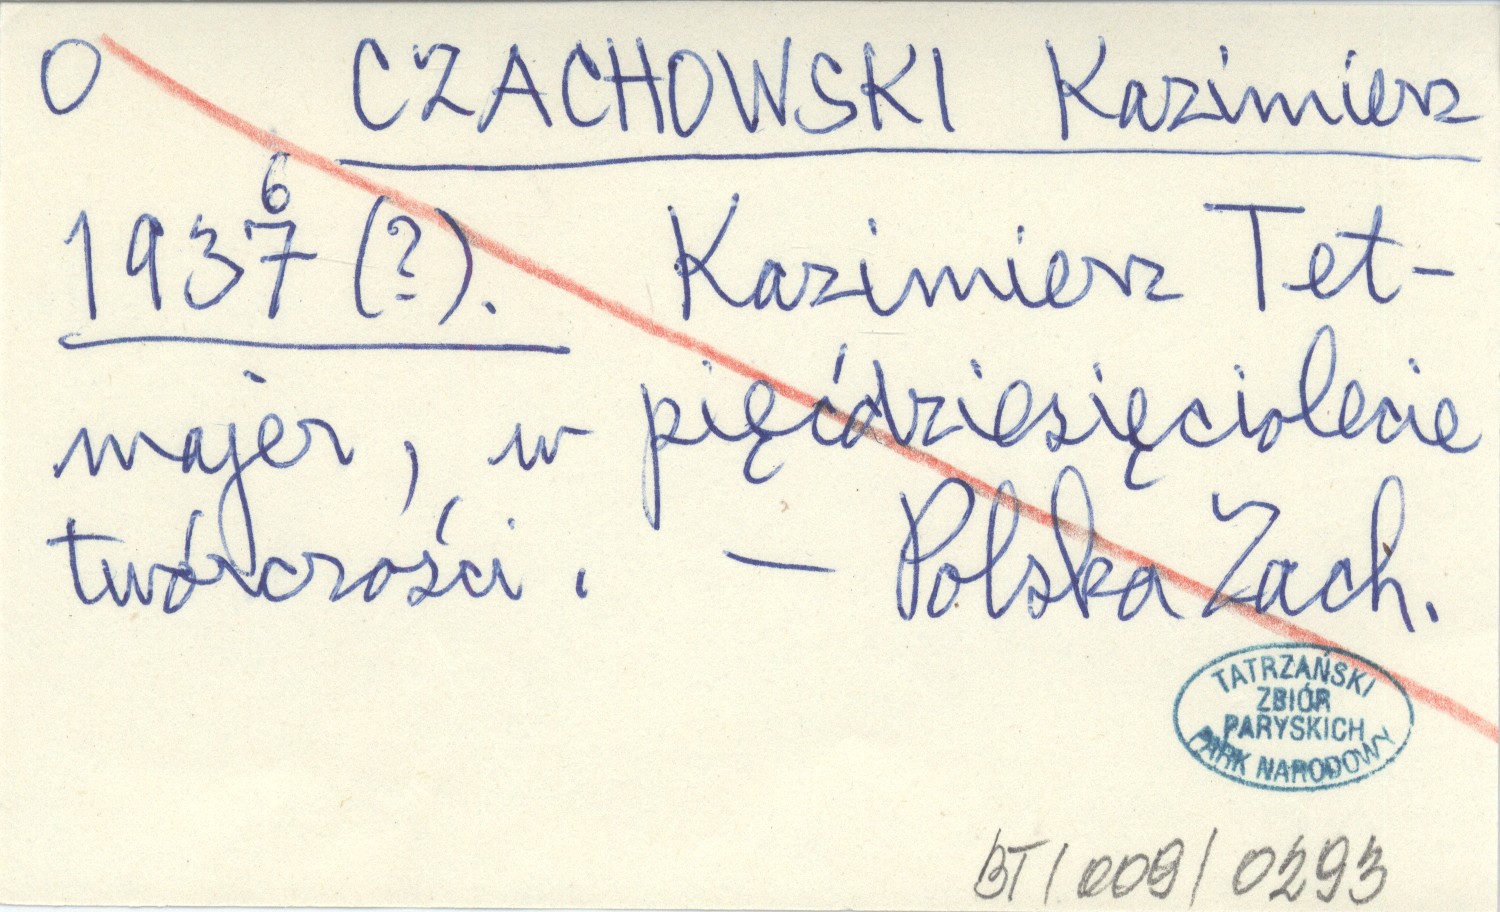 O CZACHOWSKI Kazimierz
6
1937 (?). Kazimierz Tet-
majer, w pięćdziesięciolecie
twórczości. — Polska Zach.
TATRZAŃSKI
ZBIÓR
PARYSKICH
PARK NARODOWY
BT/009/0293